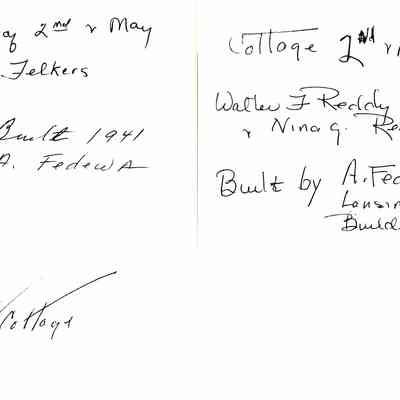 of 2nd & May
Felkers
Built 1941
A. Fedewa
Cottage
Cottage 2nd &
Walter F Reddy
& Nina G. Re
Built by A. Fed
Lansin
Build